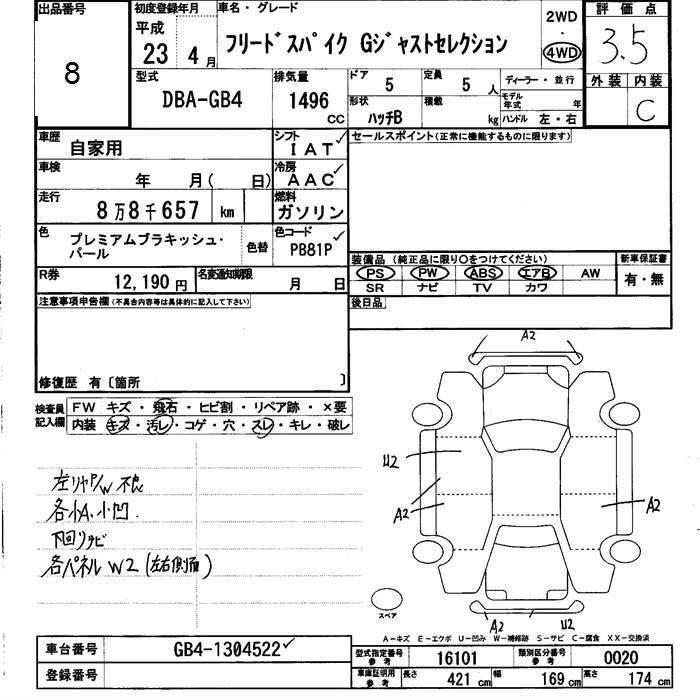 出品番号
8
初度登録年月
平成
23年 4月
車名・グレード
フリードスパイク Gジャストセレクション
2WD
・
4WD
評価点
3.5
外装 内装
C
型式
DBA-GB4
排気量
1496
CC
ドア
5
定員
5人
ディーラー・並行
モデル年式 年
形状
ハッチB
積載
kg
ハンドル 左・右
車歴
自家用
シフト
IAT
セールスポイント(正常に機能するものに限ります)
車検
年 月( 日)
冷房
AAC
走行
8万8千657 km
燃料
ガソリン
色
プレミアムブラキッシュ・
パール
色替
色コード
PB81P
装備品(純正品に限り○をつけてください)
新車保証書
PS PW ABS エアB AW
SR ナビ TV カワ
有・無
R券
12,190円
名変通知期限
月 日
後日品
注意事項申告欄(不具合内容等は具体的に記入して下さい)
修復歴 有〔箇所 〕
検査員
記入欄
FW キズ・飛石・ヒビ割・リペア跡・×要
内装 キズ・汚レ・コゲ・穴・スレ・キレ・破レ
左リヤP/W不良
各小A、小凹
下回りサビ
各パネルW2(左右側面)
A2
U2
A2
A2
A2
U2
スペア
A-キズ E-エクボ U-凹み W-補修跡 S-サビ C-腐食 XX-交換済
車台番号
GB4-1304522
登録番号
型式指定番号
参考
16101
類別区分番号
参考
0020
車庫証明用
参考
長さ
421 cm
幅
169 cm
高さ
174 cm